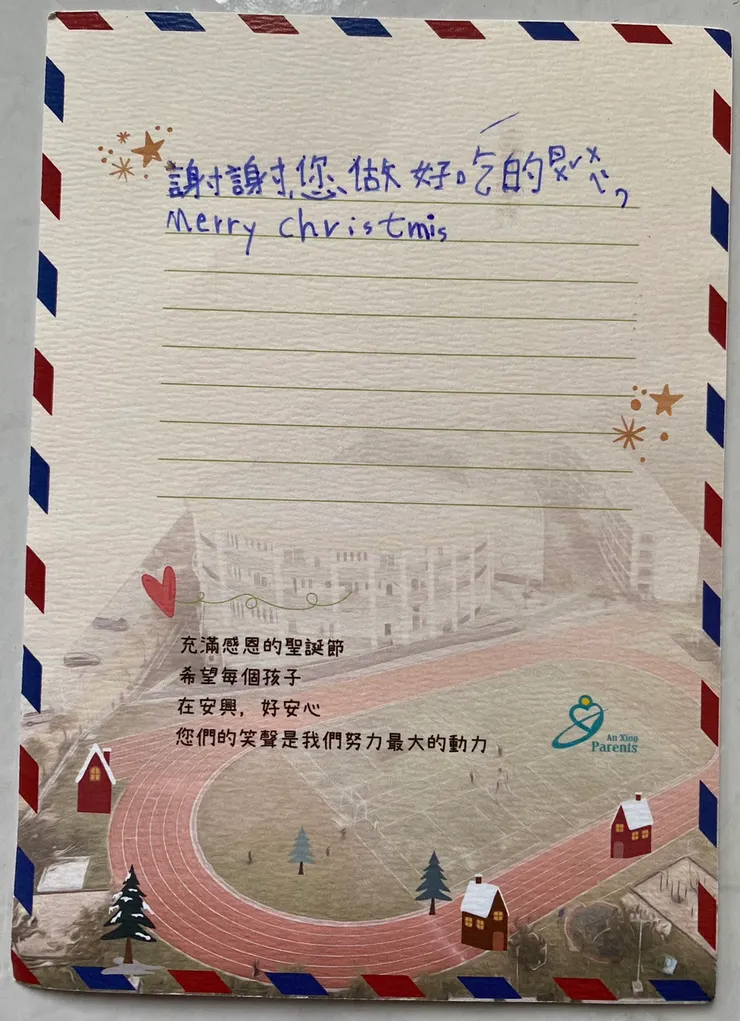 謝謝您、做好吃的,
Merry christmis
充滿感恩的聖誕節
希望每個孩子
在安興，好安心
您們的笑聲是我們努力最大的動力
An Xing
Parents